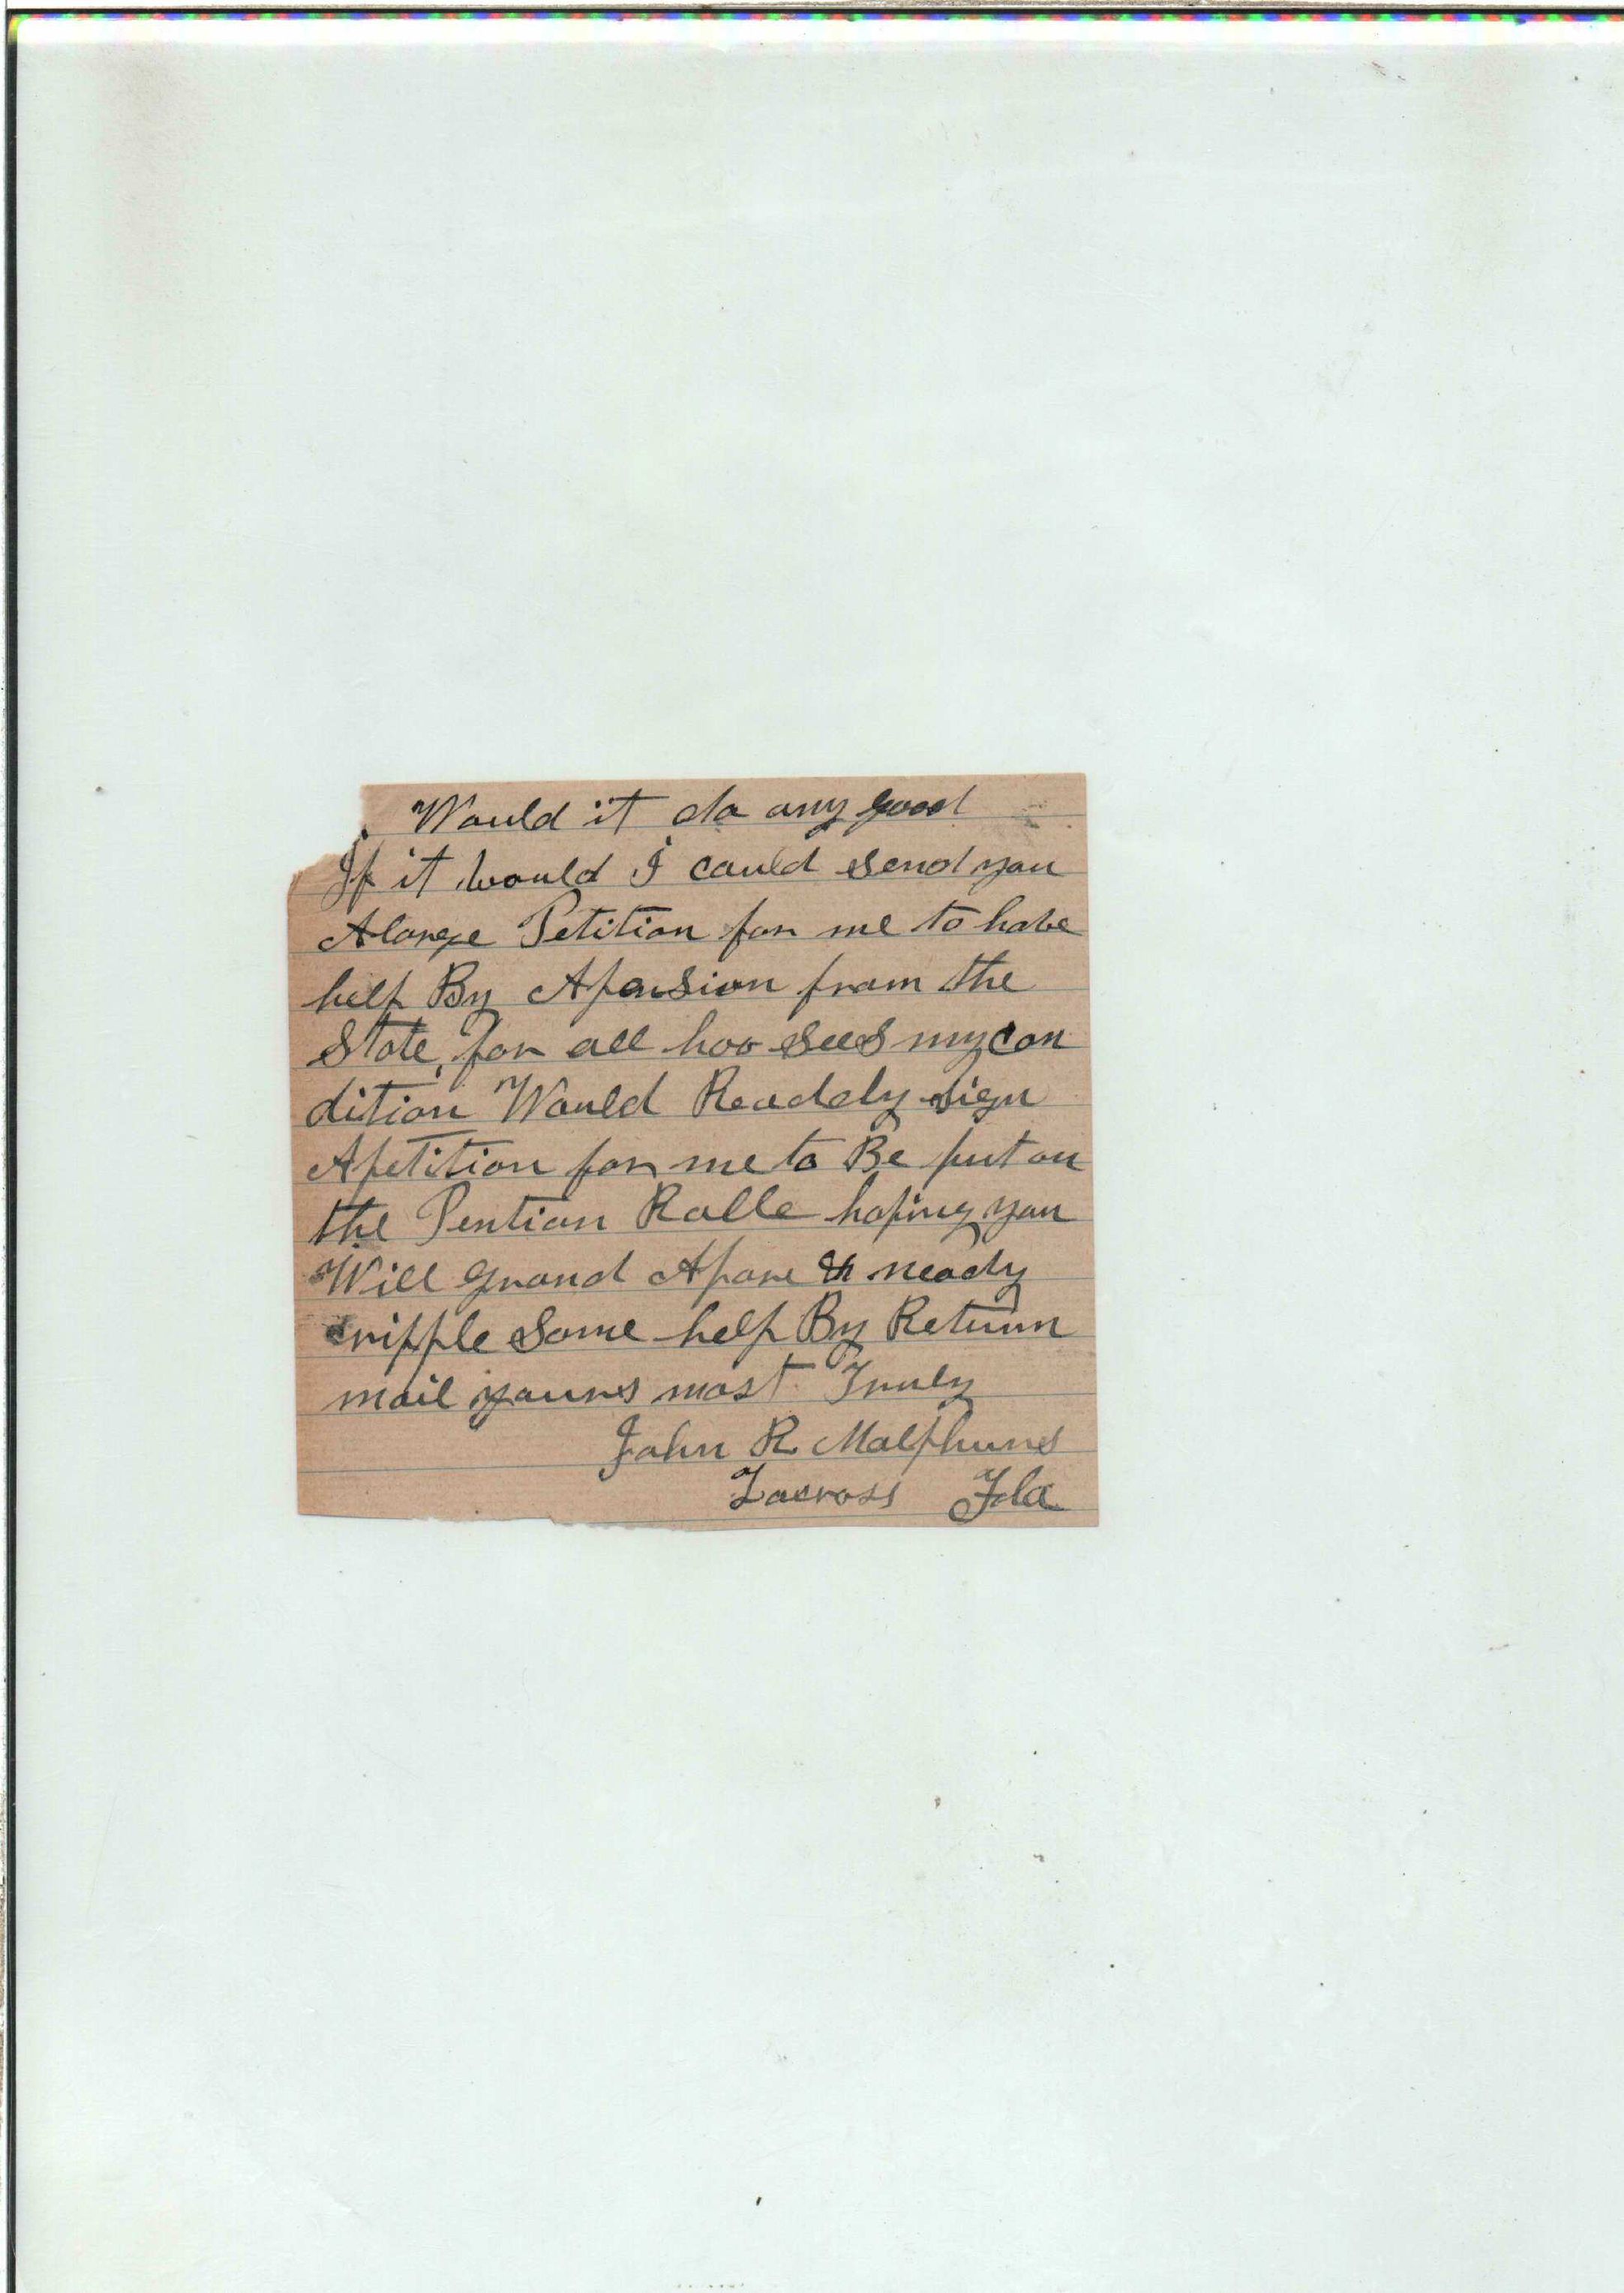 Would it do any good
If it would I could send you
A large Petition for me to have
help By A pension from the
State, for all hoo sees my con
dition Would Readely sign
A petition for me to Be put on
the Pention Rolle hoping you
Will grand A pore & neady
cripple Some help By Return
mail yours most Truly
John R. Malphurs
Lacross Fla